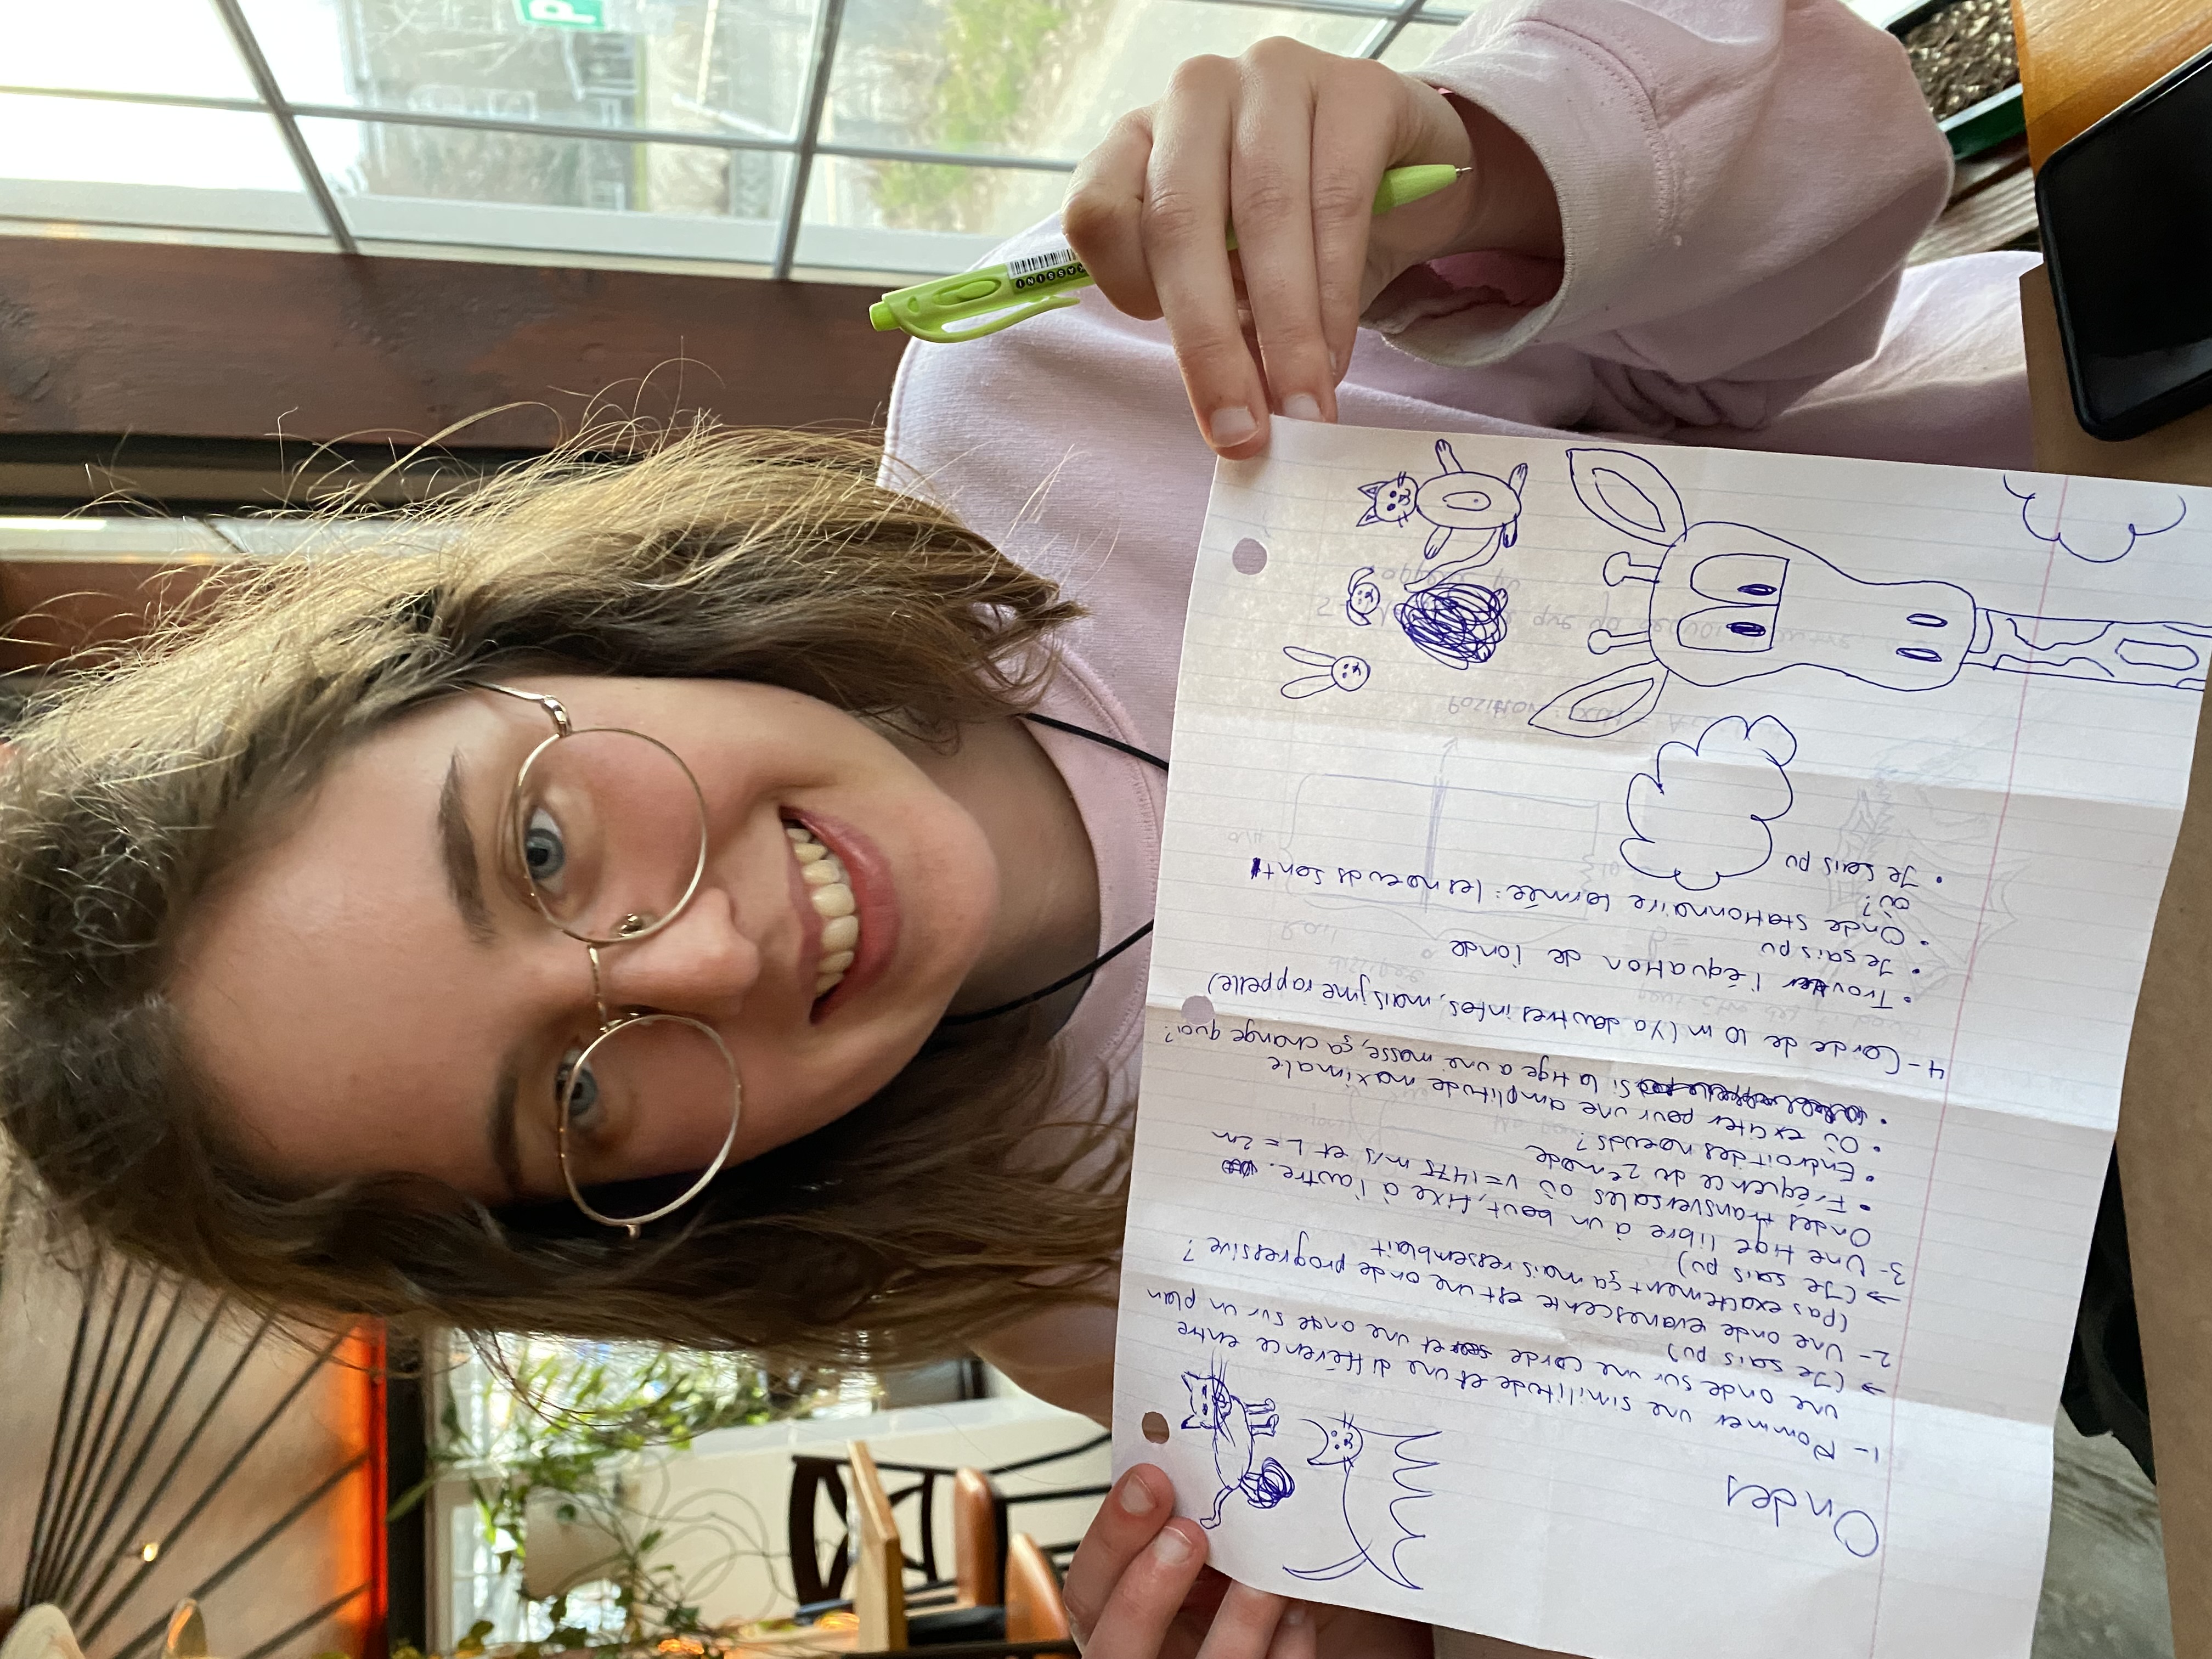 Ondes
1- Nommer une similitude et une différence entre
une onde sur une corde et une onde sur un plan
→ (Je sais pu)
2- Une onde évanescente est une onde progressive ?
(Pas exactement ça mais ressemblait
→ (Je sais pu)
3- Une tige libre à un bout, fixe à l'autre.
Ondes transversales où v=1475 m/s et L=2m
• Fréquence du 2e mode
• Endroit des noeuds?
• Où exciter pour une amplitude maximale
• Si la tige a une masse, ça change quoi?
4- Corde de 10 m (Y a d'autres infos, mais j'me rappelle)
• Trouver l'équation de l'onde
• Je sais pu
• Onde stationnaire formée: les noeuds sont
où?
• Je sais pu
P